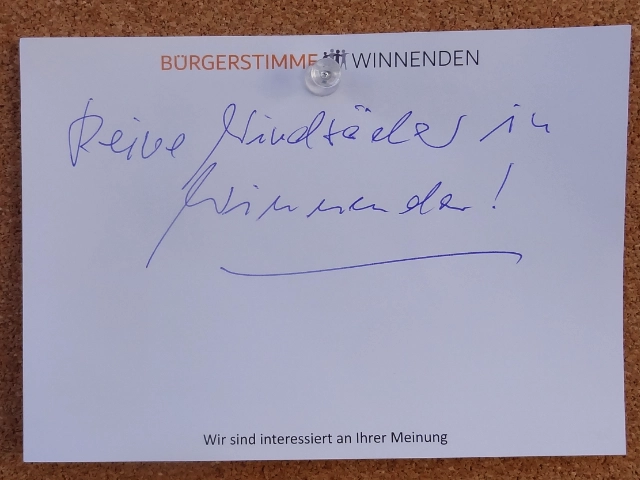 BÜRGERSTIMME WINNENDEN
Keine Windräder in
Winnenden!
Wir sind interessiert an Ihrer Meinung